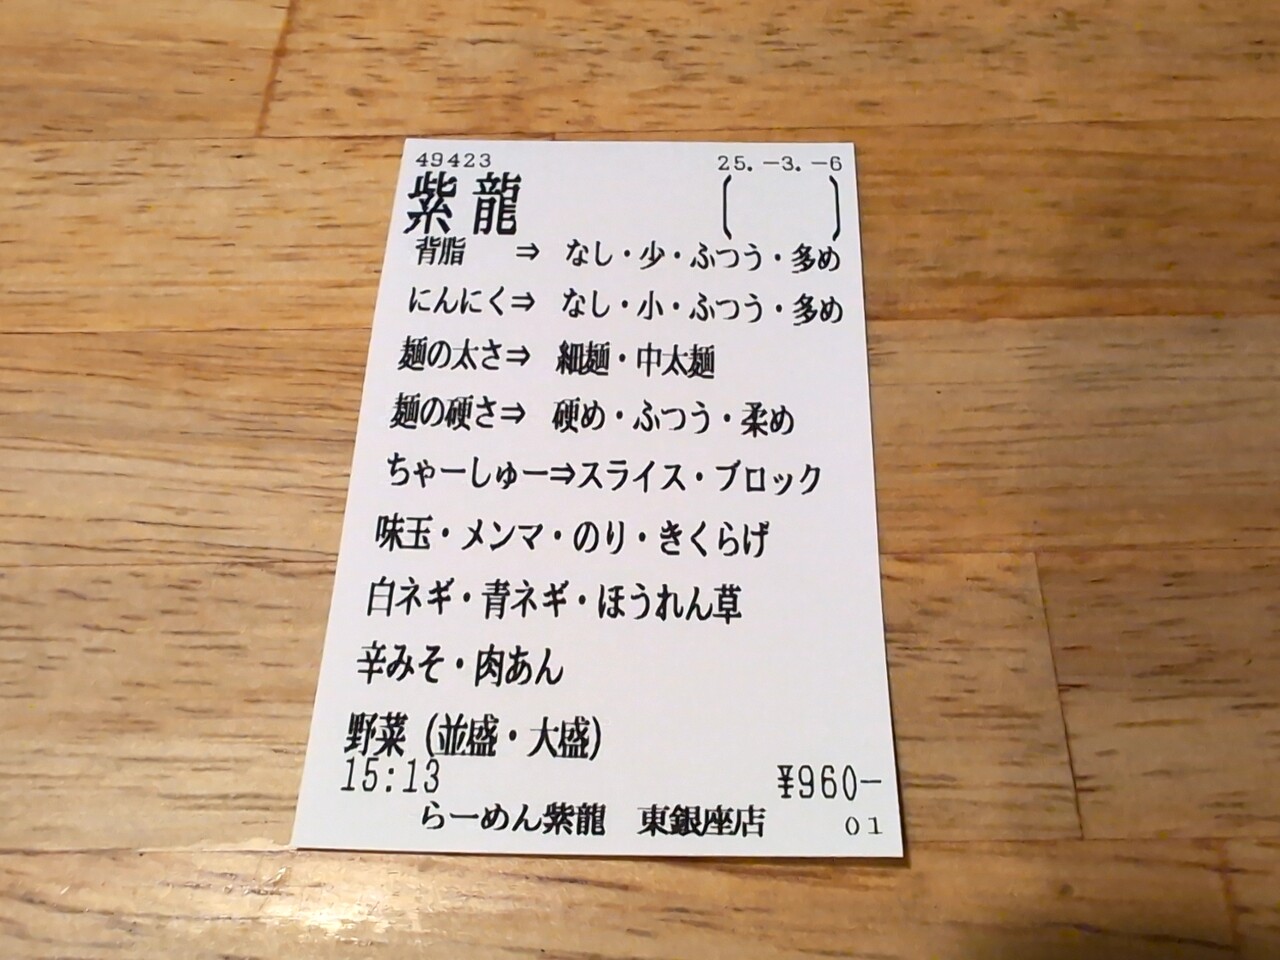 49423 25.-3.-6
紫龍 〔 〕
背脂 ⇒ なし・少・ふつう・多め
にんにく⇒ なし・小・ふつう・多め
麺の太さ⇒ 細麺・中太麺
麺の硬さ⇒ 硬め・ふつう・柔め
ちゃーしゅー⇒スライス・ブロック
味玉・メンマ・のり・きくらげ
白ネギ・青ネギ・ほうれん草
辛みそ・肉あん
野菜（並盛・大盛）
15:13 ¥960-
らーめん紫龍 東銀座店 01